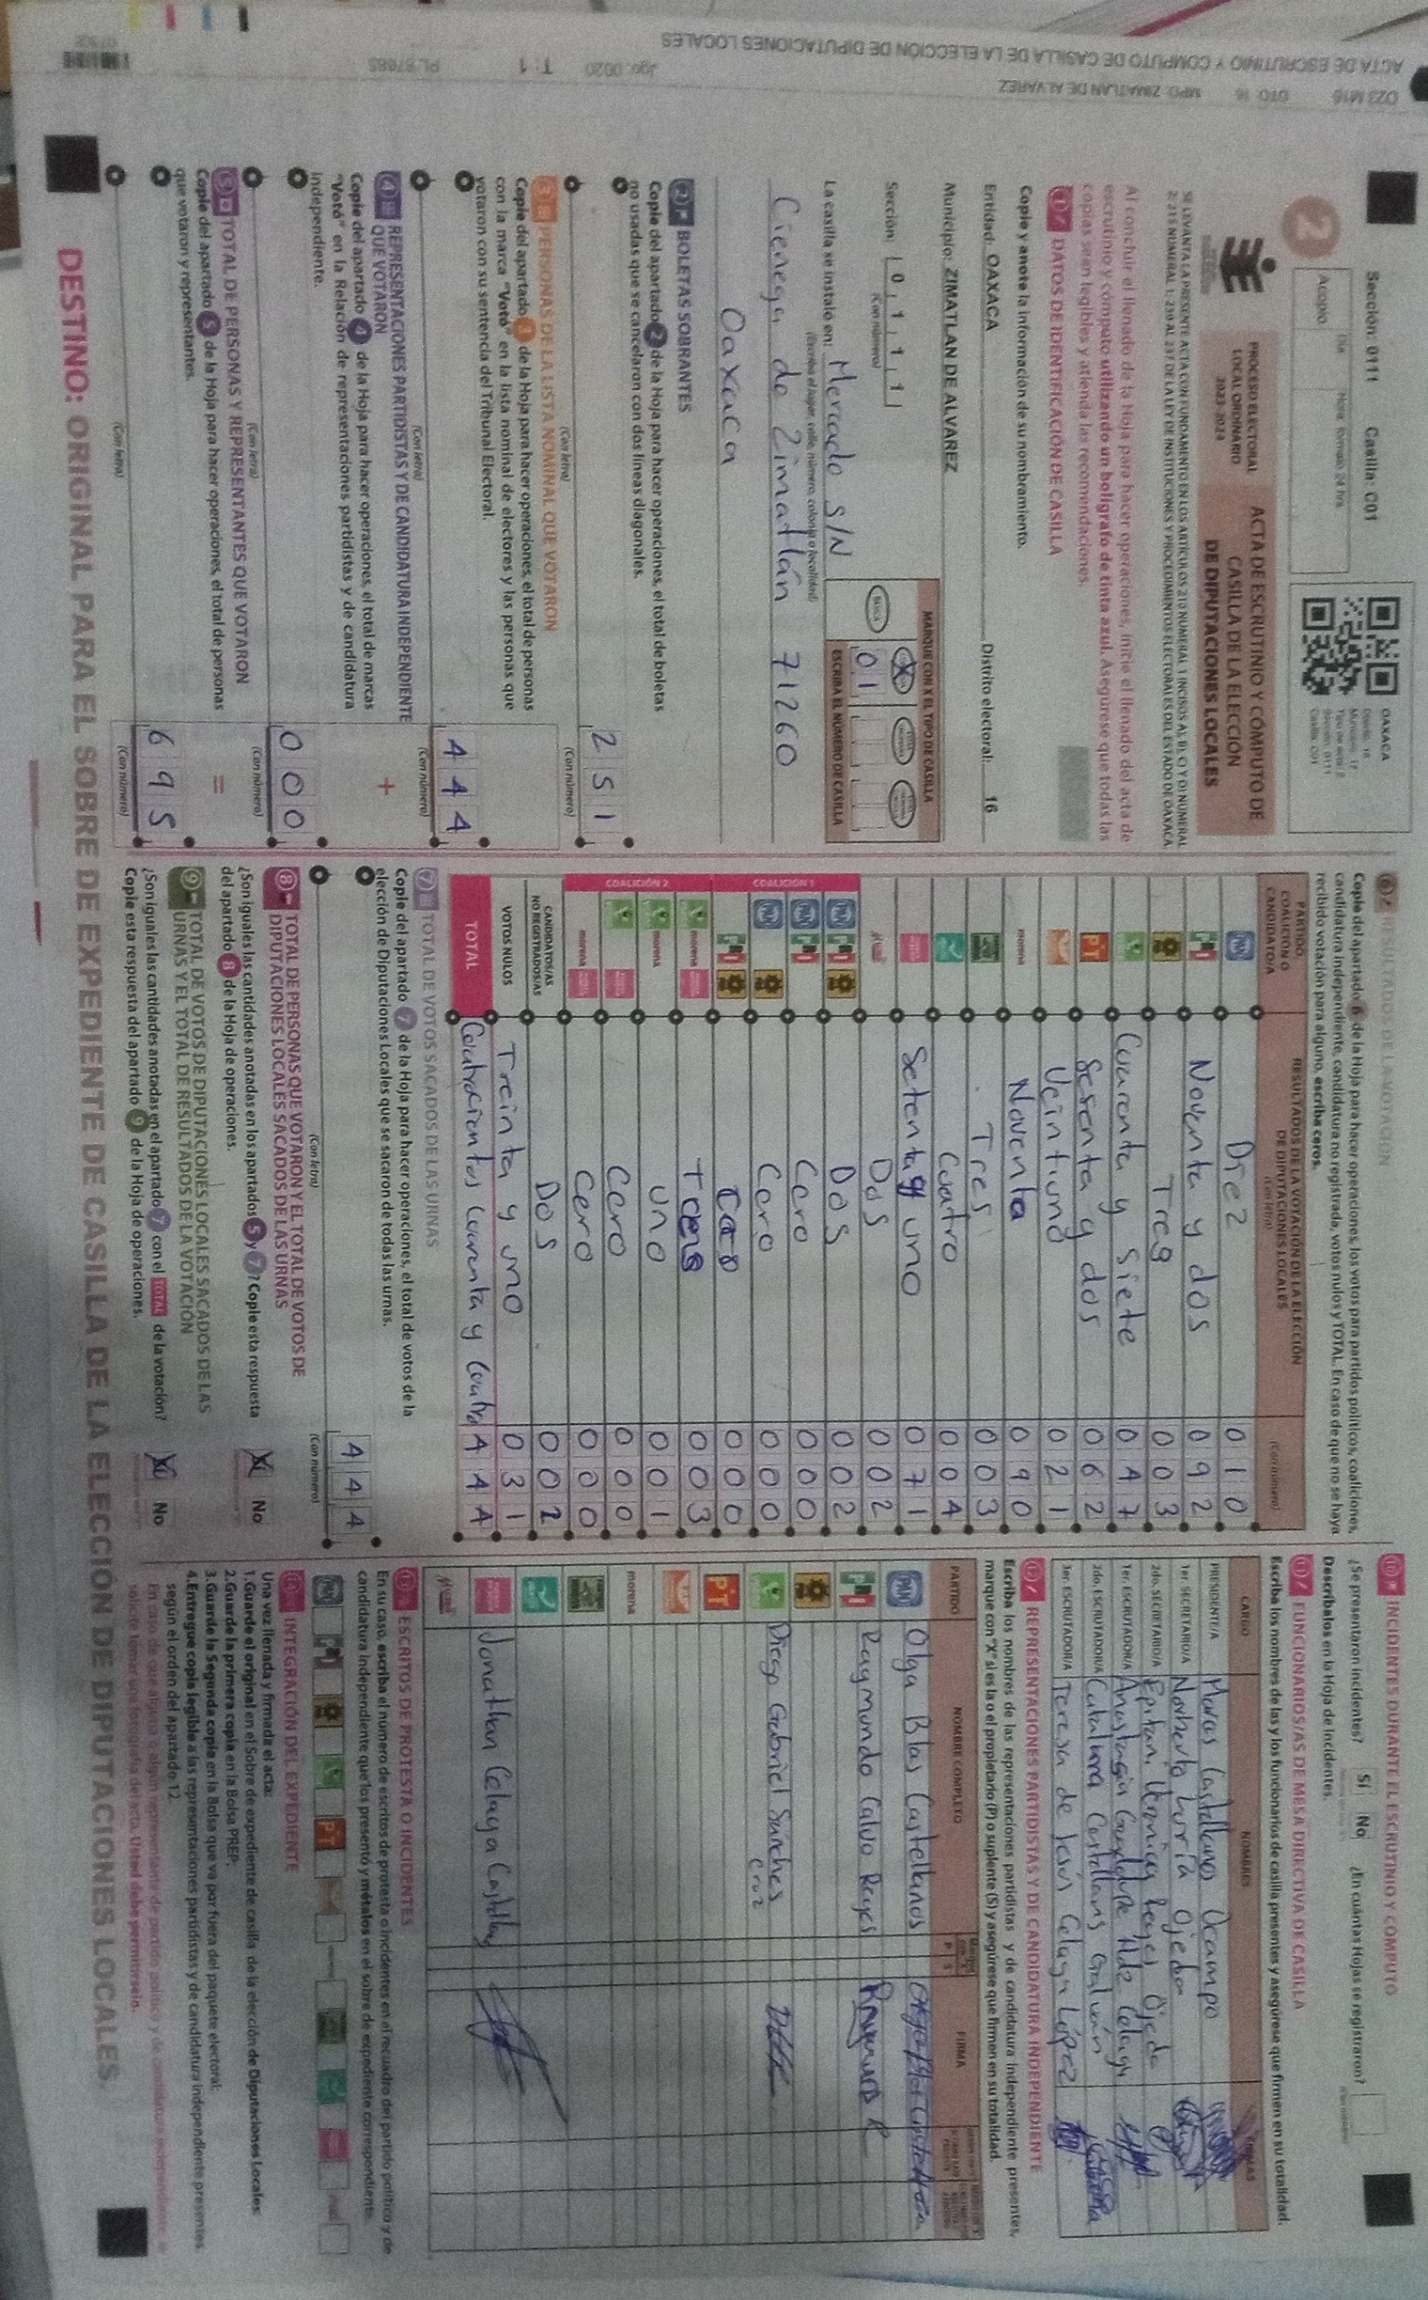 Sección: 0111 Casilla: C01
Día Hora formato 24 hrs
Acopio.
OAXACA
2
PROCESO ELECTORAL
LOCAL ORDINARIO
2023-2024
ACTA DE ESCRUTINIO Y CÓMPUTO DE
CASILLA DE LA ELECCIÓN
DE DIPUTACIONES LOCALES
Al concluir el llenado de la Hoja para hacer operaciones, inicie el llenado del acta de
escrutinio y cómputo utilizando un bolígrafo de tinta azul. Asegúrese que todas las
copias sean legibles y atienda las recomendaciones.
1 DATOS DE IDENTIFICACIÓN DE CASILLA
Copie y anote la información de su nombramiento.
Entidad: OAXACA Distrito electoral: 16
Municipio: ZIMATLAN DE ALVAREZ
Sección: 0 1 1 1
(Con número)
MARQUE CON X EL TIPO DE CASILLA
01
ESCRIBA EL NÚMERO DE CASILLA
La casilla se instaló en: Mercado S/N
(Escriba el lugar, calle, número, colonia o localidad)
Cienega de Zimatlán 71260
Oaxaca
2 BOLETAS SOBRANTES
Copie del apartado 2 de la Hoja para hacer operaciones, el total de boletas
no usadas que se cancelaron con dos líneas diagonales.
251
(Con letra) (Con número)
3 PERSONAS DE LA LISTA NOMINAL QUE VOTARON
Copie del apartado 3 de la Hoja para hacer operaciones, el total de personas
con la marca "Votó" en la lista nominal de electores y las personas que
votaron con su sentencia del Tribunal Electoral.
444
(Con letra) (Con número)
4 REPRESENTACIONES PARTIDISTAS Y DE CANDIDATURA INDEPENDIENTE
QUE VOTARON
+
Copie del apartado 4 de la Hoja para hacer operaciones, el total de marcas
"Votó" en la Relación de representaciones partidistas y de candidatura
independiente.
000
(Con letra) (Con número)
5 TOTAL DE PERSONAS Y REPRESENTANTES QUE VOTARON
=
Copie del apartado 5 de la Hoja para hacer operaciones, el total de personas
que votaron y representantes.
695
(Con letra) (Con número)
6 RESULTADOS DE LA VOTACIÓN
Copie del apartado 6 de la Hoja para hacer operaciones, los votos para partidos políticos, coaliciones,
candidatura independiente, candidatura no registrada, votos nulos y TOTAL. En caso de que no se haya
recibido votación para alguno, escriba ceros.
PARTIDO,
COALICIÓN O
CANDIDATO/A
RESULTADOS DE LA VOTACIÓN DE LA ELECCIÓN
DE DIPUTACIONES LOCALES
(Con letra)
(Con número)
PAN Diez 010
PRI Noventa y dos 092
Tres 003
Cuarenta y siete 047
PT Sesenta y dos 062
Veintiuno 021
morena Noventa 090
Tres 003
Cuatro 004
Setenta y uno 071
Dos 002
COALICIÓN 1
PAN PRI Dos 002
PAN PRI Cero 000
PAN Cero 000
PRI Cero 000
COALICIÓN 2
morena Tres 003
morena Uno 001
Cero 000
morena Cero 000
CANDIDATOS/AS
NO REGISTRADOS/AS Dos 002
VOTOS NULOS Treinta y uno 031
TOTAL Cuatrocientos Cuarenta y Cuatro 444
7 TOTAL DE VOTOS SACADOS DE LAS URNAS
Copie del apartado 7 de la Hoja para hacer operaciones, el total de votos de la
elección de Diputaciones Locales que se sacaron de todas las urnas.
444
(Con letra) (Con número)
8 TOTAL DE PERSONAS QUE VOTARON Y EL TOTAL DE VOTOS DE
DIPUTACIONES LOCALES SACADOS DE LAS URNAS
¿Son iguales las cantidades anotadas en los apartados 5 y 7? Copie esta respuesta
del apartado 8 de la Hoja de operaciones.
No
9 TOTAL DE VOTOS DE DIPUTACIONES LOCALES SACADOS DE LAS
URNAS Y EL TOTAL DE RESULTADOS DE LA VOTACIÓN
¿Son iguales las cantidades anotadas en el apartado 7 con el TOTAL de la votación?
Copie esta respuesta del apartado 9 de la Hoja de operaciones.
No
10 INCIDENTES DURANTE EL ESCRUTINIO Y CÓMPUTO
¿Se presentaron incidentes? Sí No ¿En cuántas Hojas se registraron?
Descríbalos en la Hoja de Incidentes.
11 FUNCIONARIOS/AS DE MESA DIRECTIVA DE CASILLA
Escriba los nombres de las y los funcionarios de casilla presentes y asegúrese que firmen en su totalidad.
CARGO NOMBRES FIRMAS
PRESIDENTE/A Marcos Castellanos Ocampo
1er. SECRETARIO/A Norberto Luria Ojeda
2do. SECRETARIO/A
1er. ESCRUTADOR/A Anastasia Guadalupe Hdz Celaya
2do. ESCRUTADOR/A Catalina Castellanos
3er. ESCRUTADOR/A Teresa de Jesús Celaya López
12 REPRESENTACIONES PARTIDISTAS Y DE CANDIDATURA INDEPENDIENTE
Escriba los nombres de las representaciones partidistas y de candidatura independiente presentes,
marque con "X" si es la o el propietario (P) o suplente (S) y asegúrese que firmen en su totalidad.
PARTIDO NOMBRE COMPLETO P S FIRMA
PAN Olga Blas Castellanos
PRI Raymundo Calvo Reyes
Diego Gabriel Sánches Cruz
PT
morena
Jonathan Celaya Castellanos
13 ESCRITOS DE PROTESTA O INCIDENTES
En su caso, escriba el número de escritos de protesta o incidentes en el recuadro del partido político y de
candidatura independiente que los presentó y métalos en el sobre de expediente correspondiente.
PAN PRI PT
14 INTEGRACIÓN DEL EXPEDIENTE
Una vez llenada y firmada el acta:
1. Guarde el original en el Sobre de expediente de casilla de la elección de Diputaciones Locales.
2. Guarde la primera copia en la Bolsa PREP.
3. Guarde la Segunda copia en la Bolsa que va por fuera del paquete electoral.
4. Entregue copia legible a las representaciones partidistas y de candidatura independiente presentes
según el orden del apartado 12.
solicite tomar una fotografía del acta. Usted debe permitírselo.
DESTINO: ORIGINAL PARA EL SOBRE DE EXPEDIENTE DE CASILLA DE LA ELECCIÓN DE DIPUTACIONES LOCALES.
DTO: 16 MPO: ZIMATLAN DE ALVAREZ
ACTA DE ESCRUTINIO Y CÓMPUTO DE CASILLA DE LA ELECCIÓN DE DIPUTACIONES LOCALES